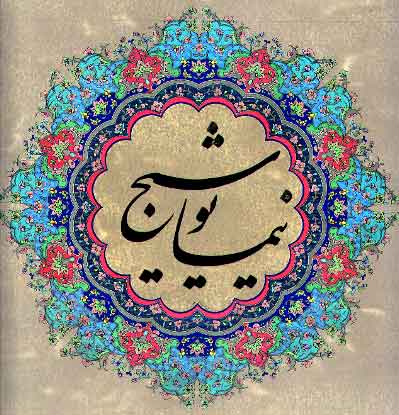 نیما یوشیج